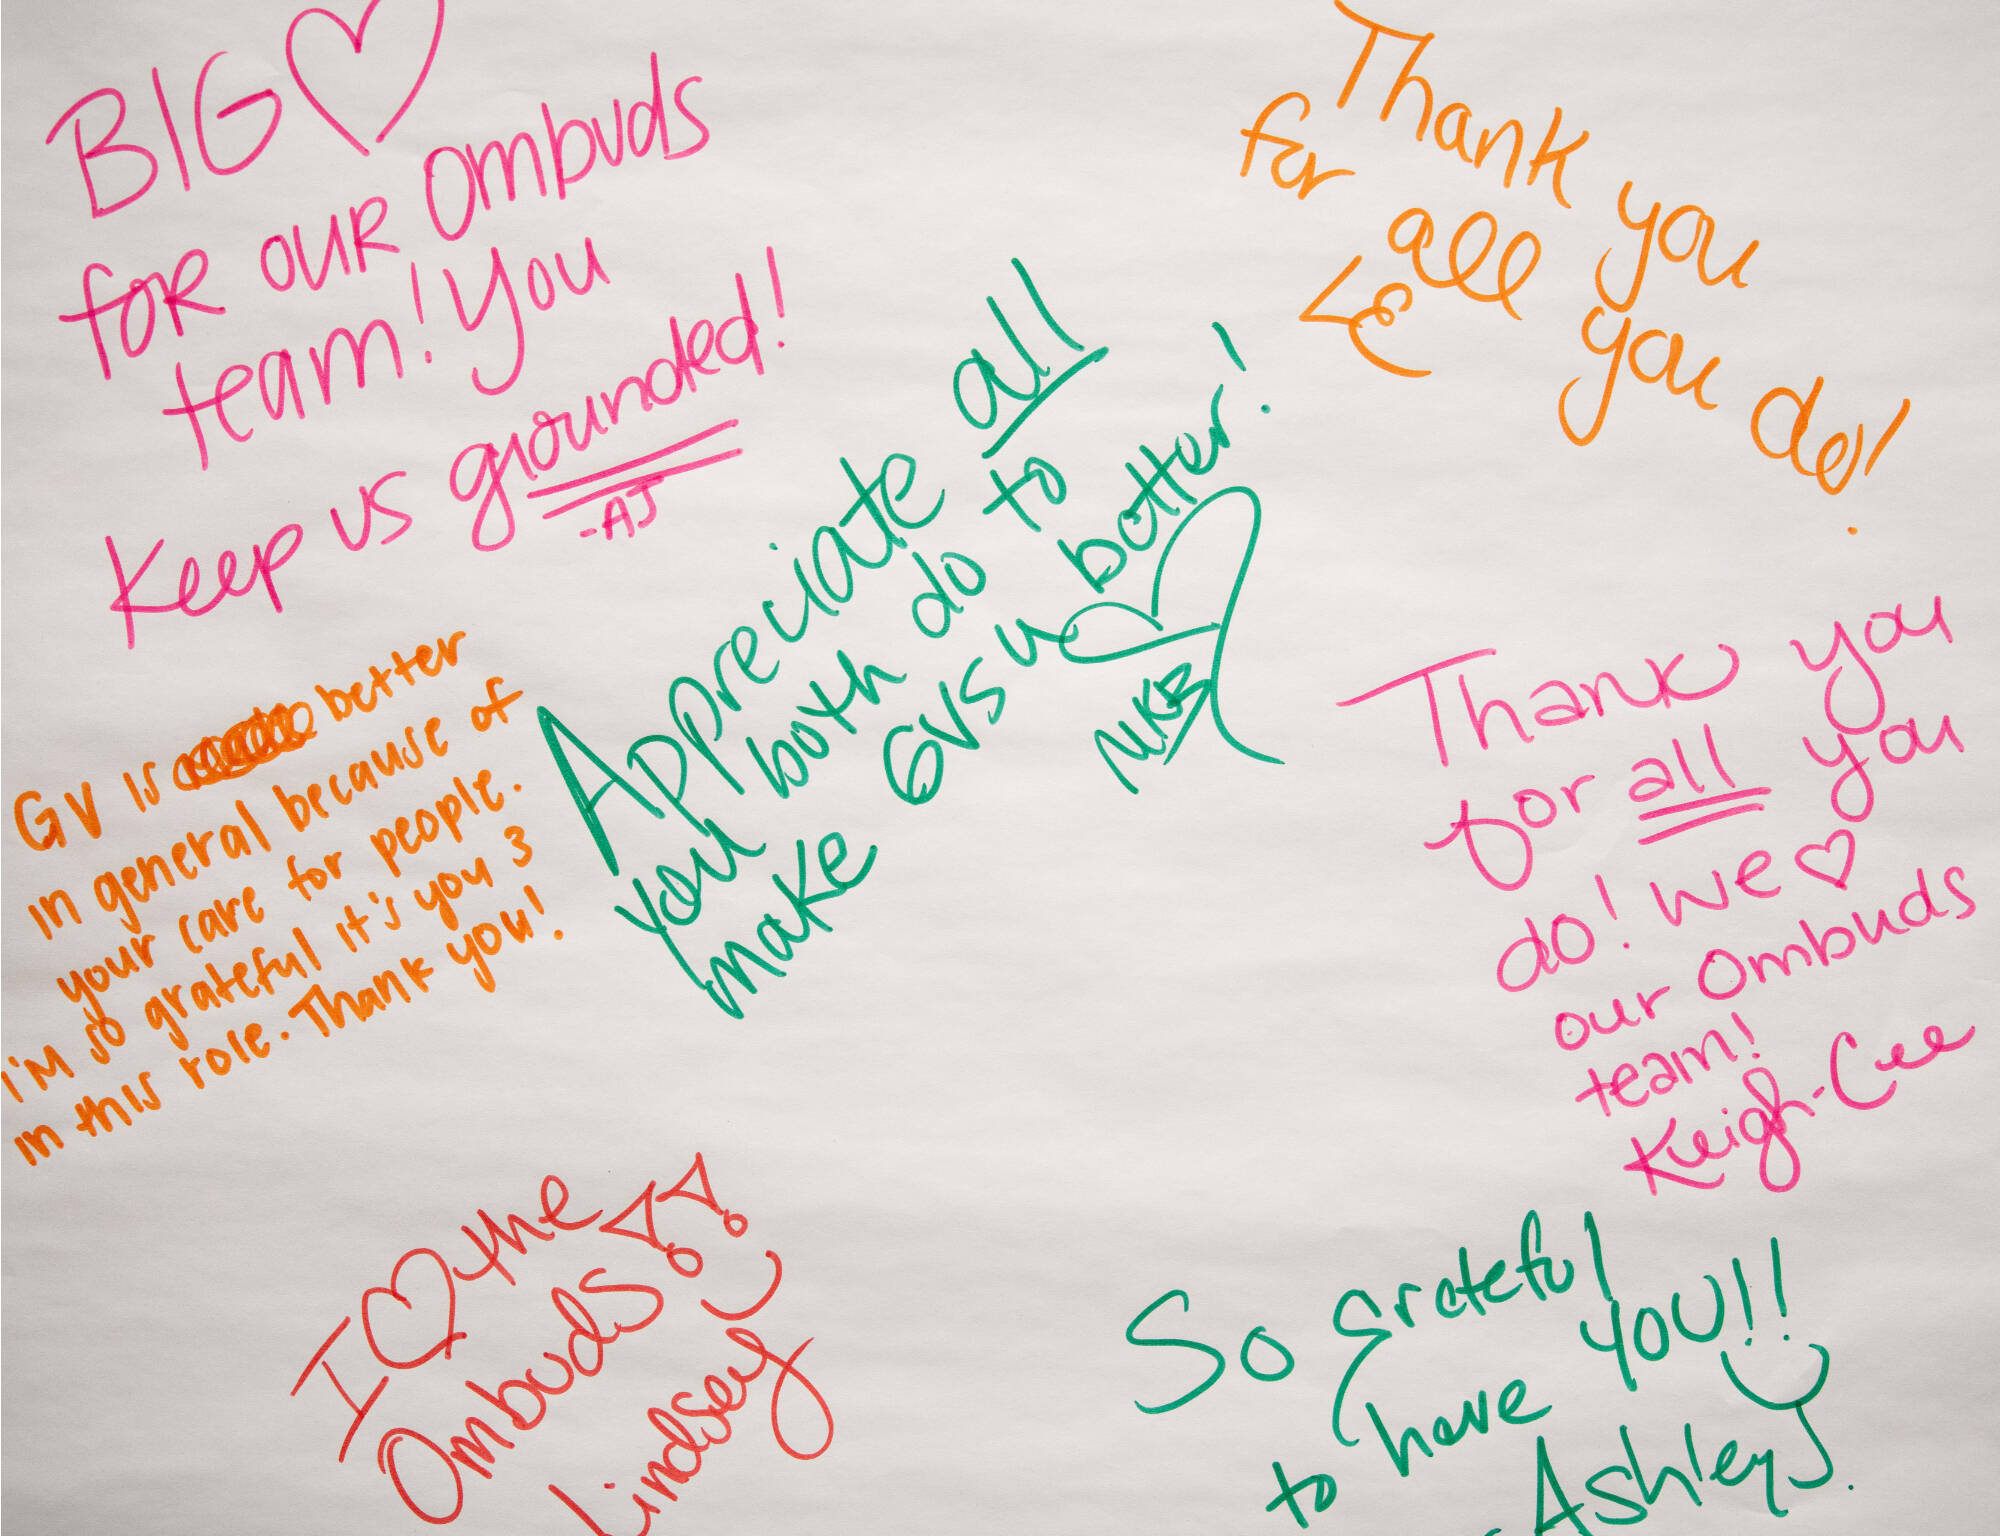 BIG ♡
for our ombuds
team! You
Keep us grounded!
-AJ
Thank you
for all you do!
LE
Appreciate all
you both do to
make GVSU better!
MKB
GV is better
in general because of
your care for people.
I'm so grateful it's you 3
in this role. Thank you!
Thank you
for all you
do! We ♡
our Ombuds
team!
Keigh-Cee
I ♡ the
Ombuds!!
Lindsey
So grateful
to have YOU!!
-Ashley J.